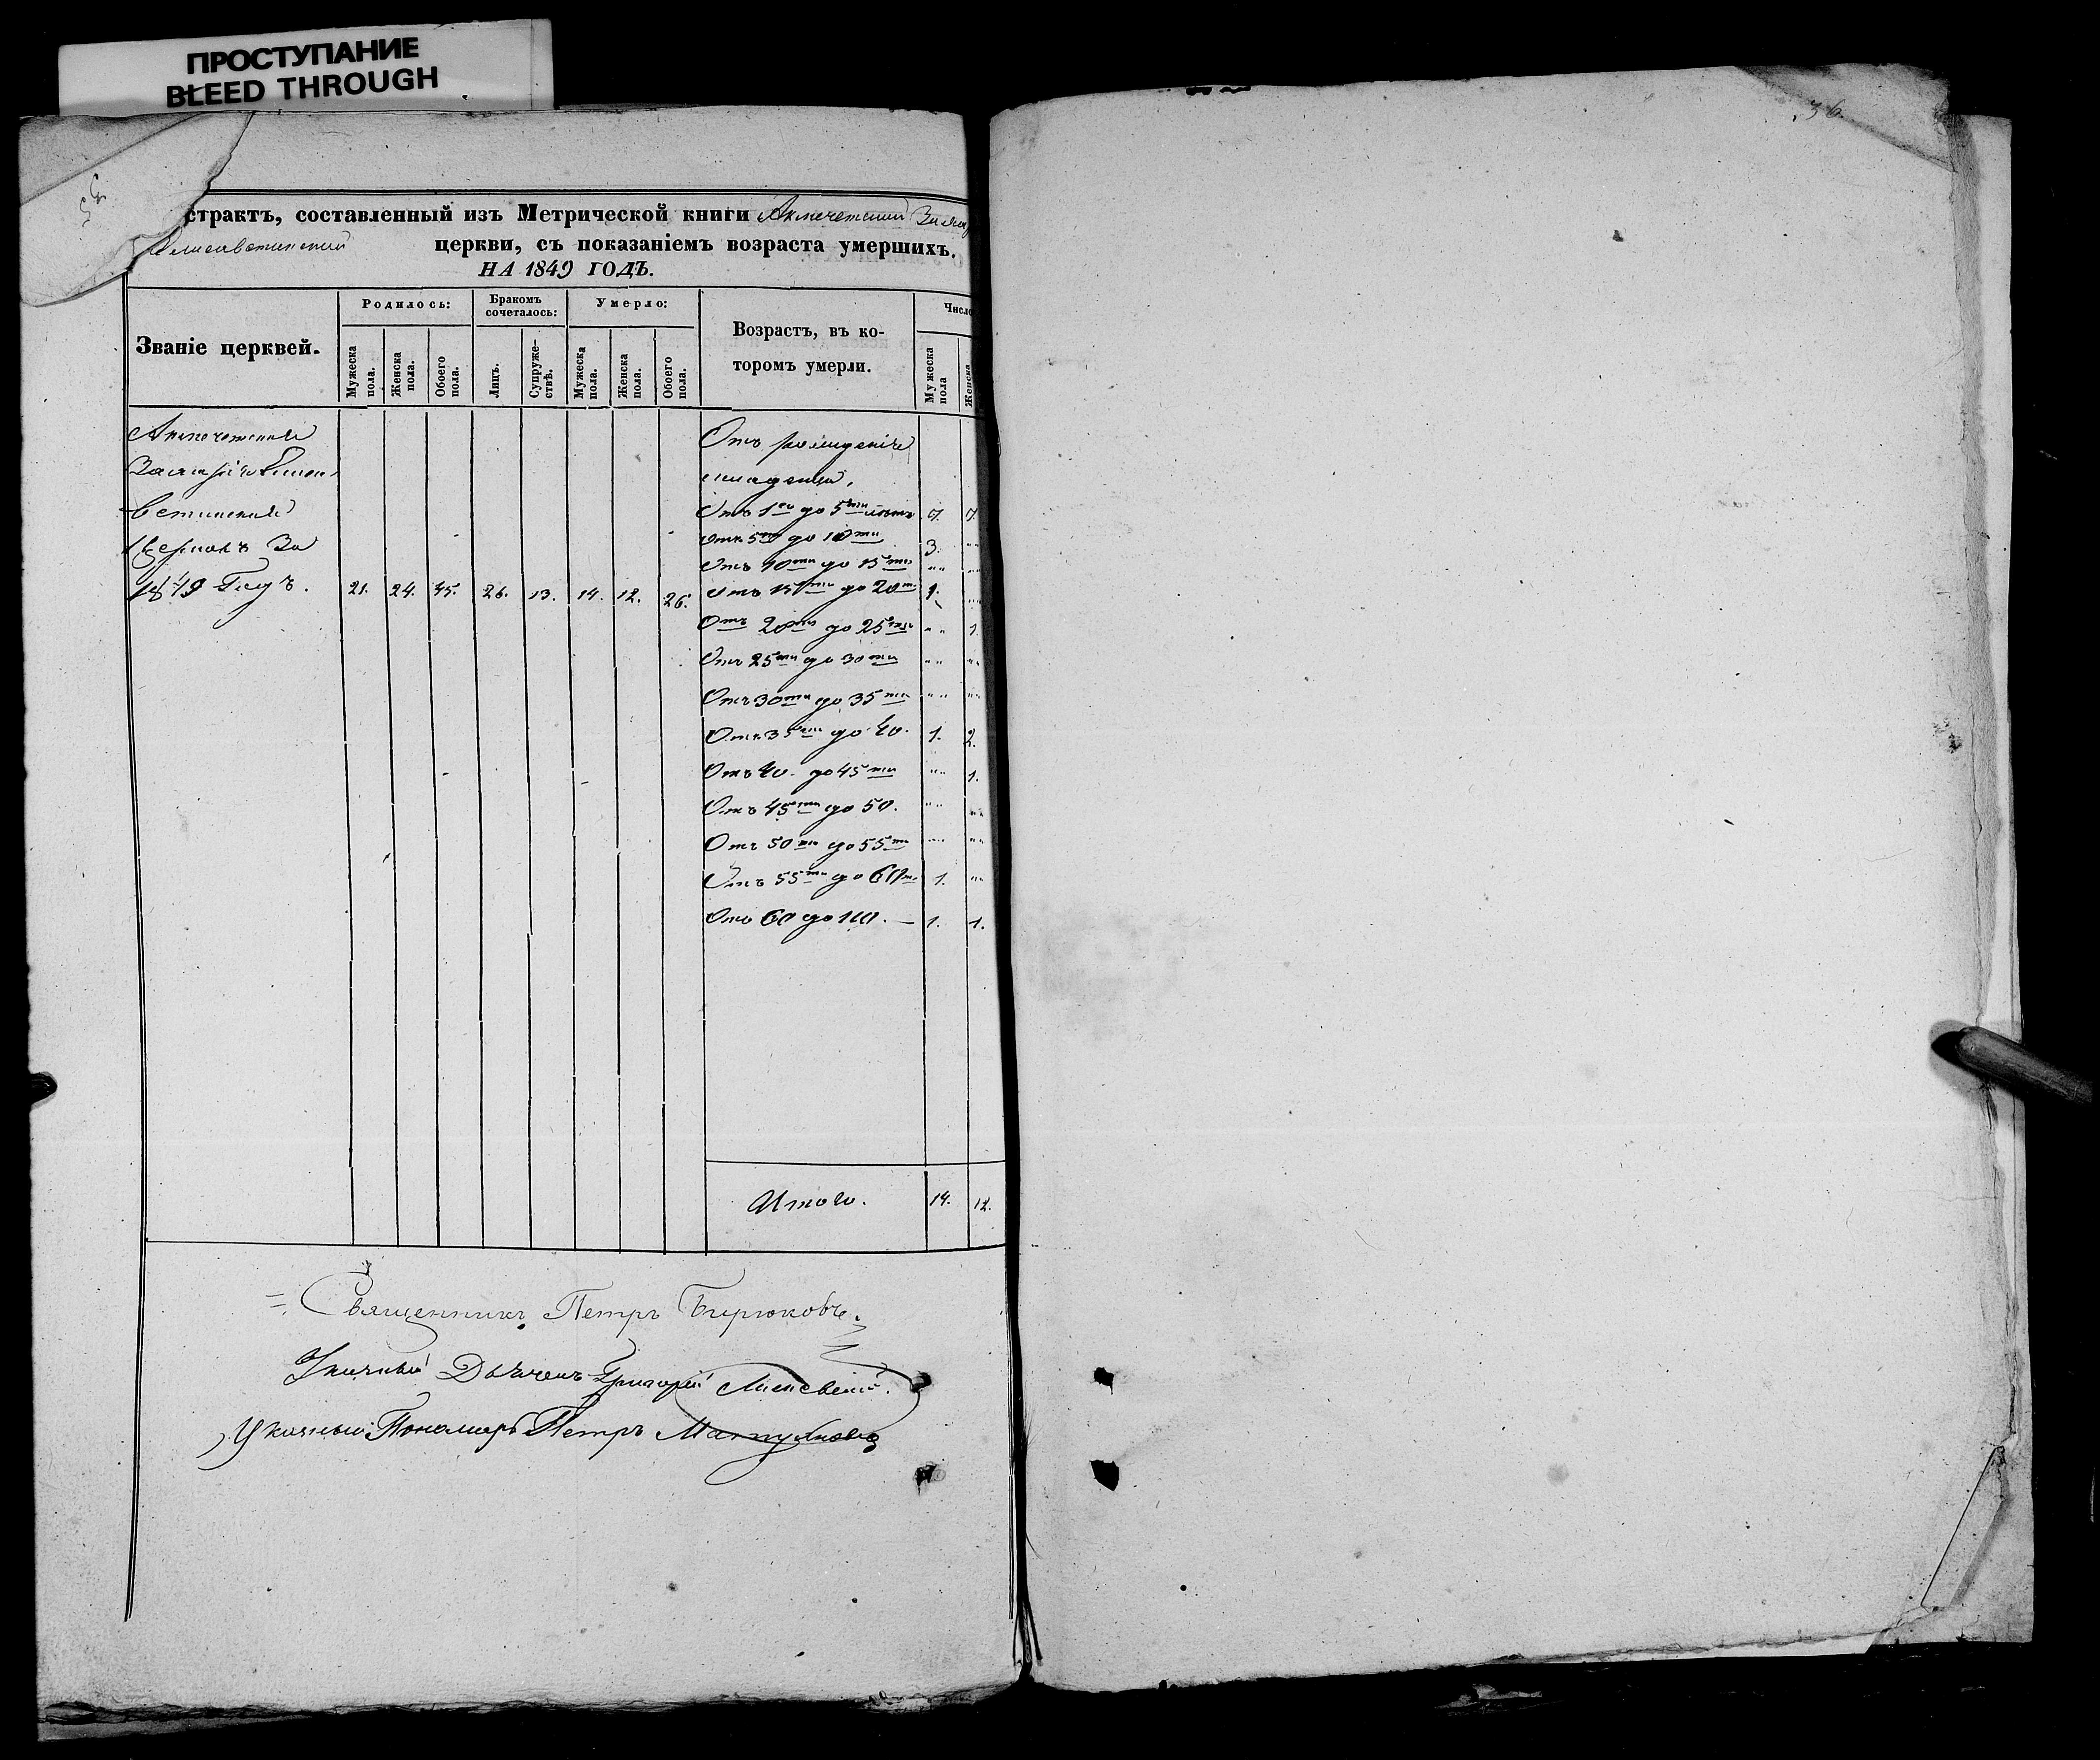 ПРОСТУПАНИЕ
BLEED THROUGH
36.
35
страктъ, составленный изъ Метрической книги Акмечетский
церкви, съ показаніемъ возраста умершихъ.
НА 1849 ГОДЪ.
Званіе церквей.
Родилось:
Бракомъ сочеталось:
Умерло:
Возрастъ, въ ко-
торомъ умерли.
Число
Мужеска пола.
Женска пола.
Обоего пола.
Лицъ.
Супруже-ствъ.
Мужеска пола.
Женска пола.
Обоего пола.
Мужеска пола
Женска
Отъ рожденія
младенцы.
Отъ 1го до 5ти лѣтъ 7. 7.
Отъ 5ти до 10ти 3. „„
Отъ 10ти до 15ти „„ „„
1849 Годъ. 21. 24. 45. 26. 13. 14. 12. 26. Отъ 15ти до 20ти 1. „„
Отъ 20ти до 25ти „„ 1.
Отъ 25ти до 30ти „„ „„
Отъ 30ти до 35ти „„ „„
Отъ 35ти до 40. 1. 2.
Отъ 40. до 45ти „„ 1.
Отъ 45ти до 50. „„ „„
Отъ 50ти до 55ти „„ „„
Отъ 55ти до 60ти 1. „„
Отъ 60 до 110. — 1. 1.
Итого. 14. 12.
Священникъ Петръ Бирюковъ.
Указный Дьячекъ Григорій
Указный Пономарь Петръ